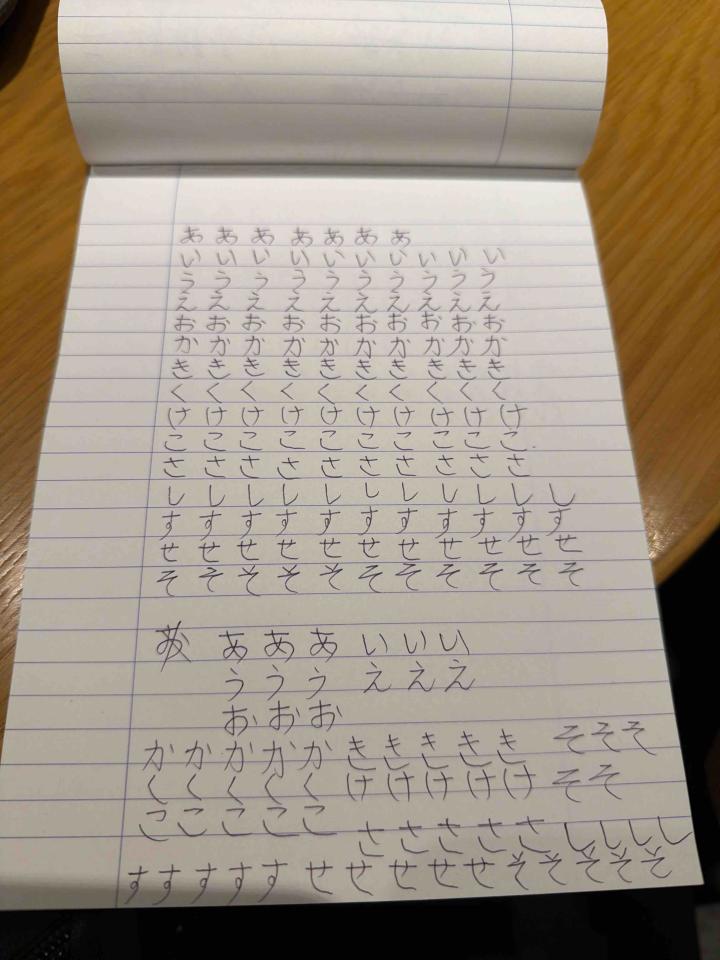 あ あ あ あ あ あ あ
い い い い い い い い い い
う う う う う う う う う う
え え え え え え え え え え
お お お お お お お お お お
か か か か か か か か か か
き き き き き き き き き き
く く く く く く く く く く
け け け け け け け け け け
こ こ こ こ こ こ こ こ こ こ
さ さ さ さ さ さ さ さ さ さ
し し し し し し し し し し し
す す す す す す す す す す す
せ せ せ せ せ せ せ せ せ せ せ
そ そ そ そ そ そ そ そ そ そ そ
あ あ あ い い い
う う う え え え
お お お
か か か か か き き き き き そ そ そ
く く く く く け け け け け そ そ
こ こ こ こ こ さ さ さ さ さ し し し し
す す す す す せ せ せ せ せ そ そ そ そ そ